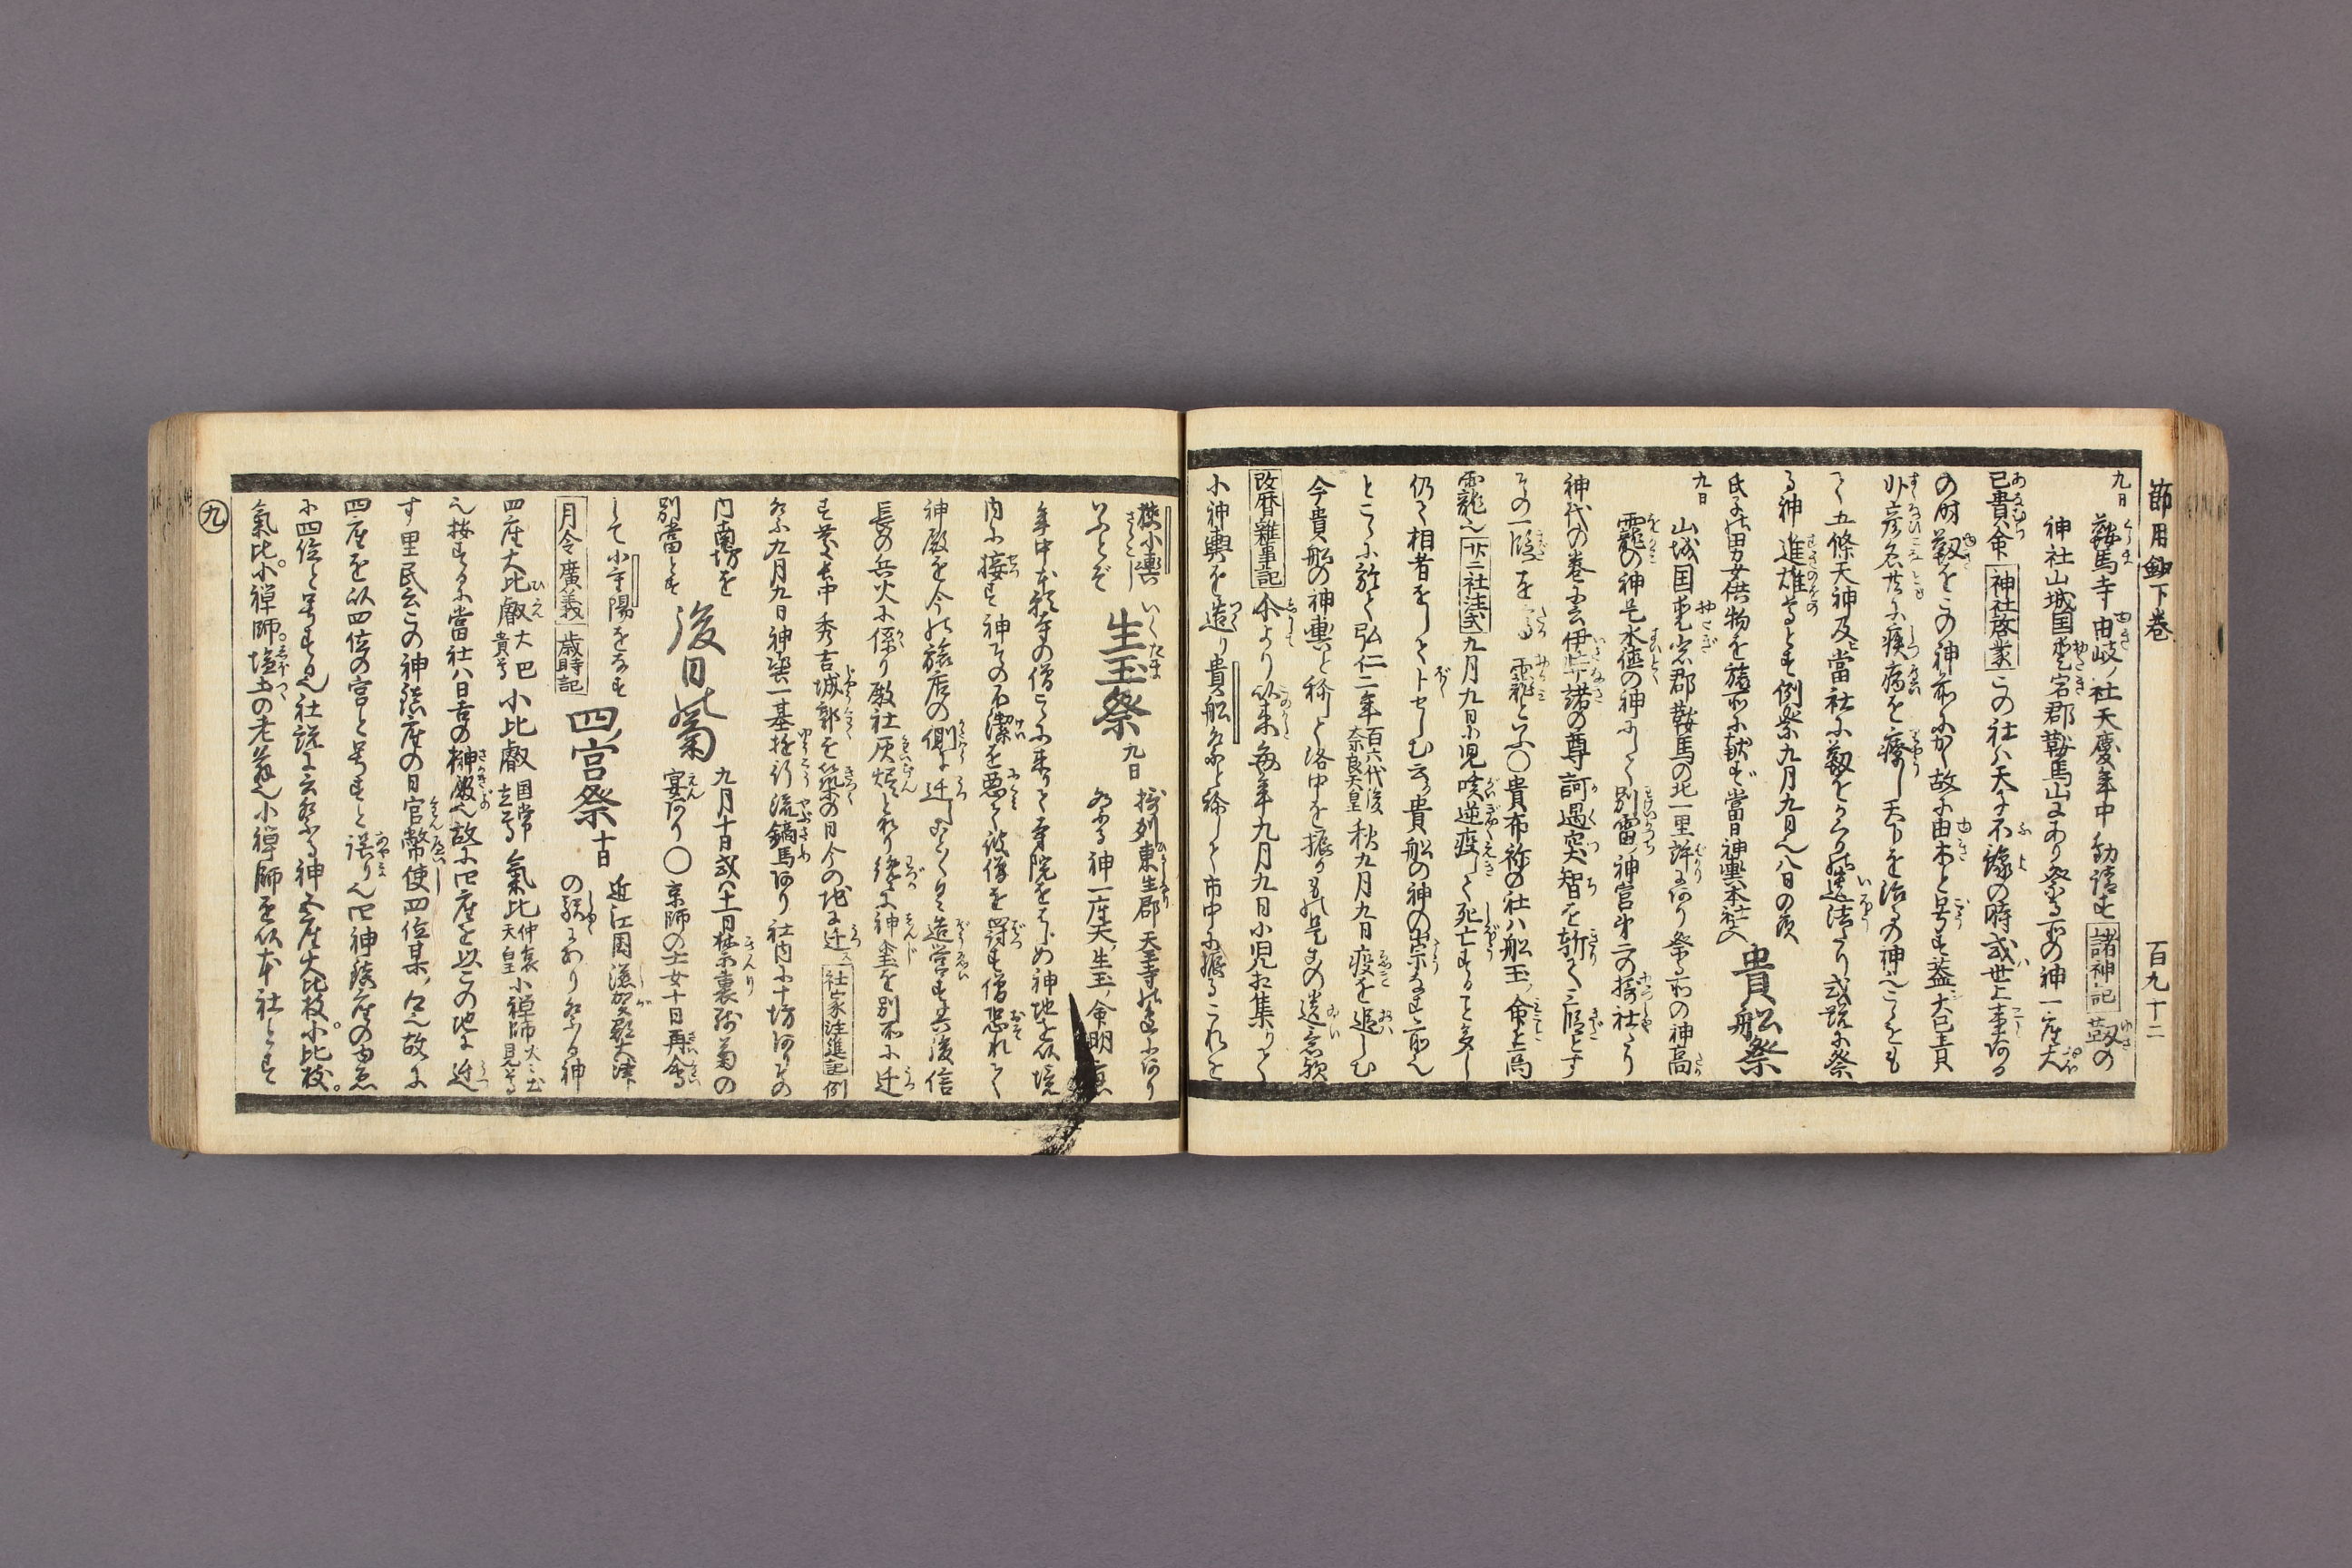 節用鈔下巻 百九十二
九日 鞍馬寺由岐ノ社天慶年中勧請す 諸神記 靱の
神社山城国愛宕郡鞍馬山にあり祭る所の神一座大
己貴命 神社啓蒙 この社ハ天子不豫の時或世上事ある
の時靱をこの神前にかく故に由木と号す蓋大己貴
少彦名共に疾病を療し天下を治るの神也こゝをも
て五條天神及當社に靱をかくる遺法
る神進雄尊とす例祭九月九日也八日の夜
氏子の男女供物を旅所に献ず當日神輿本社に入 貴船祭
九日 山城国愛宕郡鞍馬の北一里許にあり祭る所の神高
龗の神是水徳の神にして別雷ノ神宮第二の摂社たり
神代の巻云伊弉諾の尊訶遇突智を斬て三段とす
その一段を 龗といふ〇貴布祢の社ハ船玉ノ命
龗也 廿二社注式 九月九日小児咳逆疫して死亡すること多し
仍て相者をしてトせしむ云貴船の神の祟なす所也
ところに於て弘仁二年百六代後奈良天皇秋九月九日疫を追しむ
今貴船の神輿と称して洛中を振るもの是その遺意歟
改暦雑事記 より以来毎年九月九日小児相集りて
小神輿を造り貴船祭と称して市中に振るこれを
樽小輿といふとぞ 生玉祭 九日 摂州東生郡天王寺の にあり
祭る神一座天ノ生玉ノ命明應
年中本願寺の僧こゝに来りて寺院をはじめ神地を以境
内に接す神その不潔を悪て彼僧を罰す僧恐れて
神殿を今の旅店の側に迁すことく造営す其後信
長の兵火に係り殿社灰燼となり纔に神璽を別所に迁
す慶長中秀吉城郭を築の日今の地に迁ス 社家注進記 例
祭九月九日神輿一基 流鏑馬あり社内に十坊ありその
内南坊を別當とす 後日の菊 九月十日或ハ十一日禁裏残菊の
宴あり〇京師の士女十日再會
して小重陽をなす
月令廣義 歳時記 四ノ宮祭 十日 近江国滋賀郡大津
の駅にあり祭る神
四座大比叡大己貴尊小比叡国常立尊氣比仲哀天皇小禅師火々出見尊
也按するに當社ハ日吉の榊 也故に四座を以この地に迁
す里民云この神鎮座の日官幣使四位某ノ 也故に
四座を以四位の宮と号すと誤り也四神 座の
に四位と号する也社説に云祭る神五座大比枝。小比枝。
氣比。小禅師。塩土の老翁也小禅師を以本社とす
九